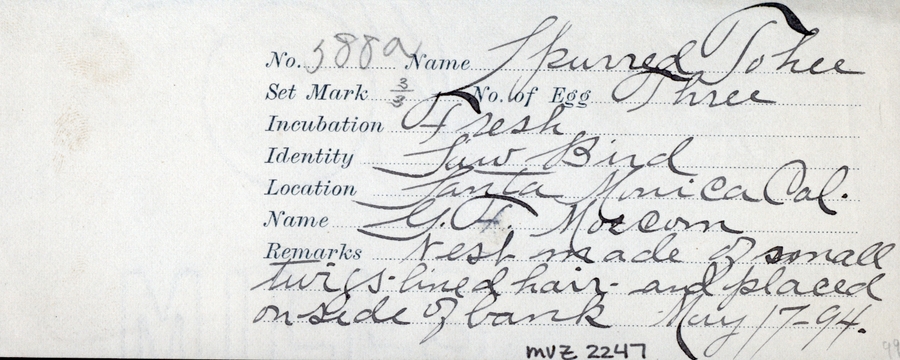 No. 588a Name Spurred Tohee
Set Mark 3/3 No. of Egg Three
Incubation Fresh
Identity Saw Bird
Location Santa Monica Cal.
Name G. F. Morcom
Remarks Nest made of small
twigs-lined hair- and placed
on side of bank May 17-94.
mvz 2247